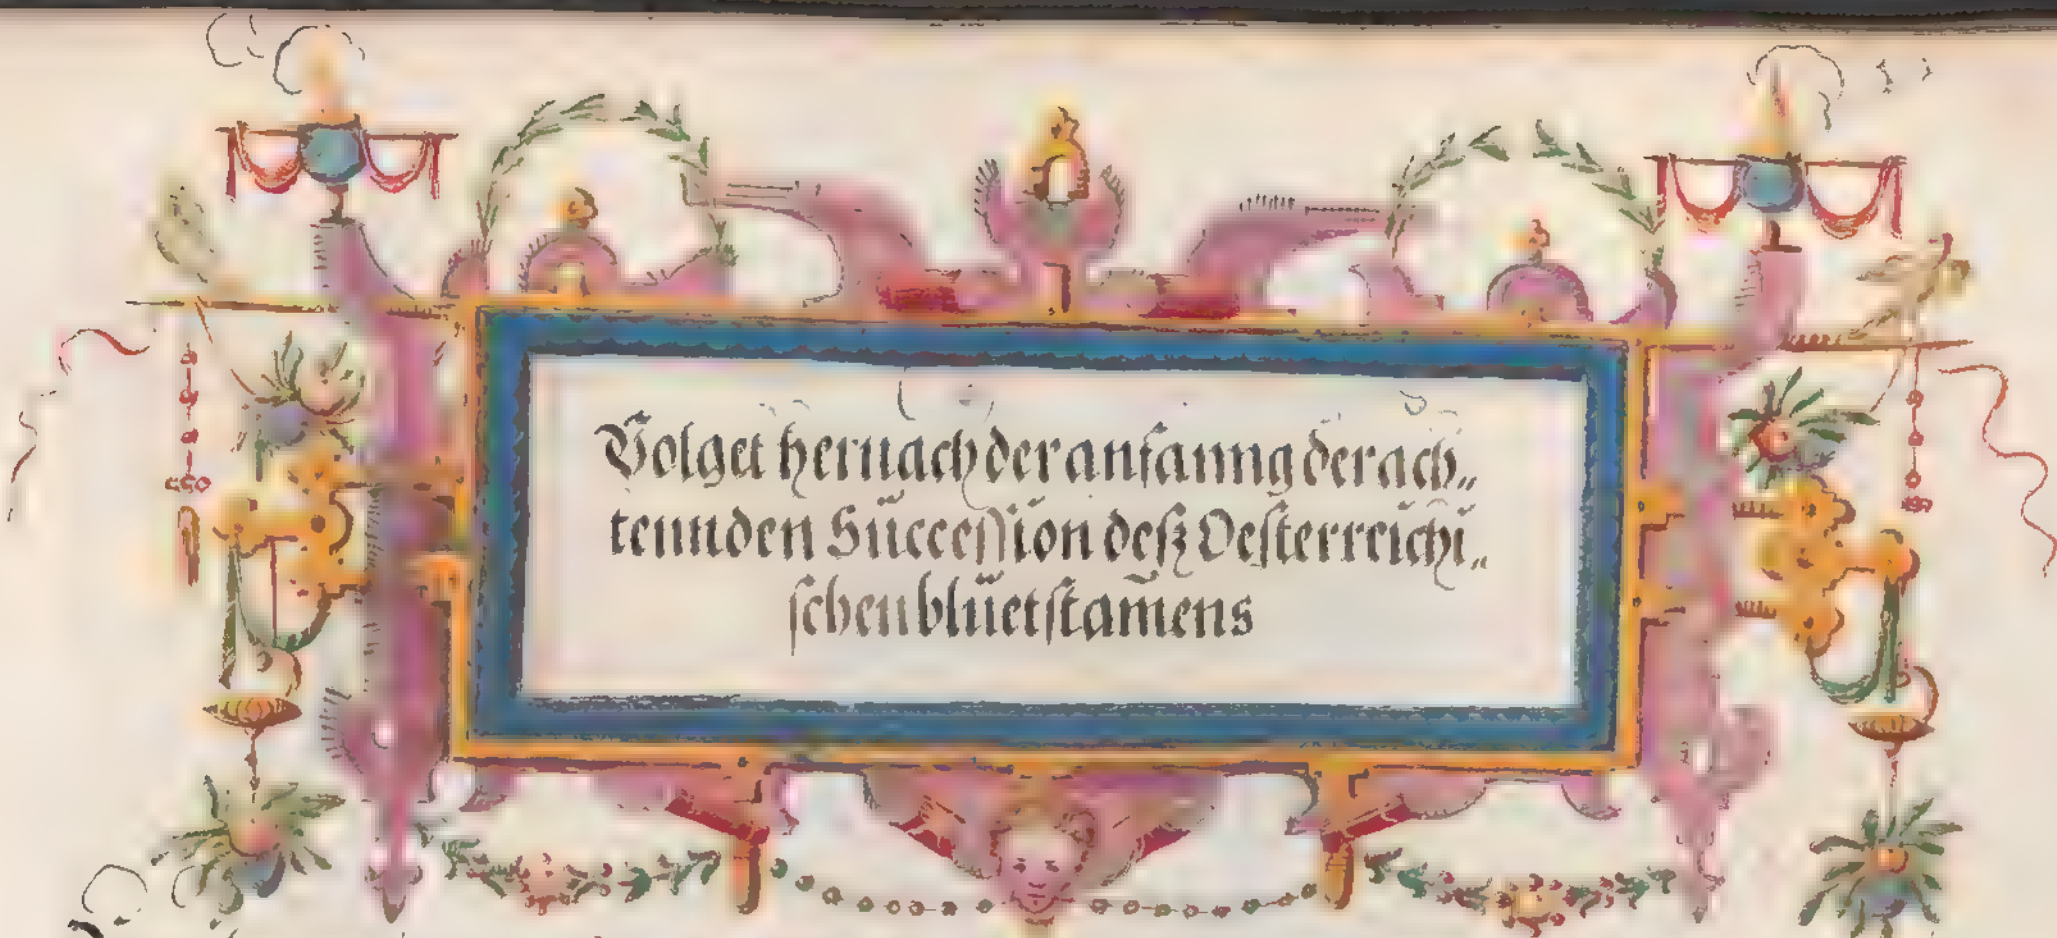 Volget hernach der anfanng der ach„
tennden Sŭccession deß Oesterreichi„
schen blŭetstam̄ens